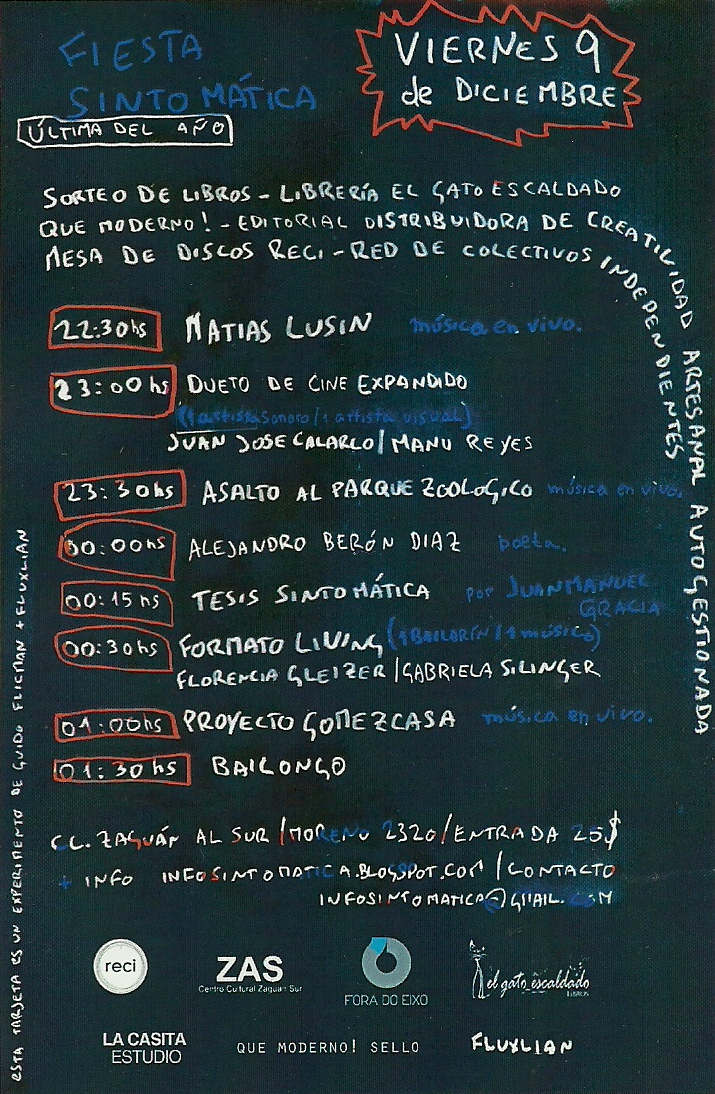 FIESTA
SINTOMÁTICA
ÚLTIMA DEL AÑO
VIERNES 9
de DICIEMBRE
SORTEO DE LIBROS - LIBRERÍA EL GATO ESCALDADO
QUE MODERNO! - EDITORIAL DISTRIBUIDORA DE CREATIVIDAD ARTESANAL AUTOGESTIONADA
MESA DE DISCOS RECI - RED DE COLECTIVOS INDEPENDIENTES
22:30hs MATIAS LUSIN música en vivo.
23:00hs DUETO DE CINE EXPANDIDO
(1 artista sonoro / 1 artista visual)
JUAN JOSE CALARCO / MANU REYES
23:30hs ASALTO AL PARQUE ZOOLOGICO música en vivo.
00:00hs ALEJANDRO BERÓN DIAZ poeta.
00:15hs TESIS SINTOMÁTICA por JUAN MANUEL
GRACIA
00:30hs FORMATO LIVING (1 BAILARÍN / 1 MÚSICO)
FLORENCIA GLEIZER / GABRIELA SILINGER
01:00hs PROYECTO GOMEZCASA música en vivo.
01:30hs BAILONGO
CC. ZAGUÁN AL SUR / MORENO 2320 / ENTRADA 25$
+ INFO INFOSINTOMATICA.BLOGSPOT.COM / CONTACTO
INFOSINTOMATICA@GMAIL.COM
ESTA TARJETA ES UN EXPERIMENTO DE GUIDO FLICMAN + FLUXLIAN
reci
ZAS
Centro Cultural Zaguan Sur
FORA DO EIXO
el gato escaldado
LIBROS
LA CASITA
ESTUDIO
QUE MODERNO! SELLO
FLUXLIAN